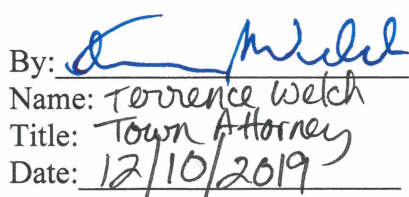 By:
Name: Terrence Welch
Title: Town Attorney
Date: 12/10/2019